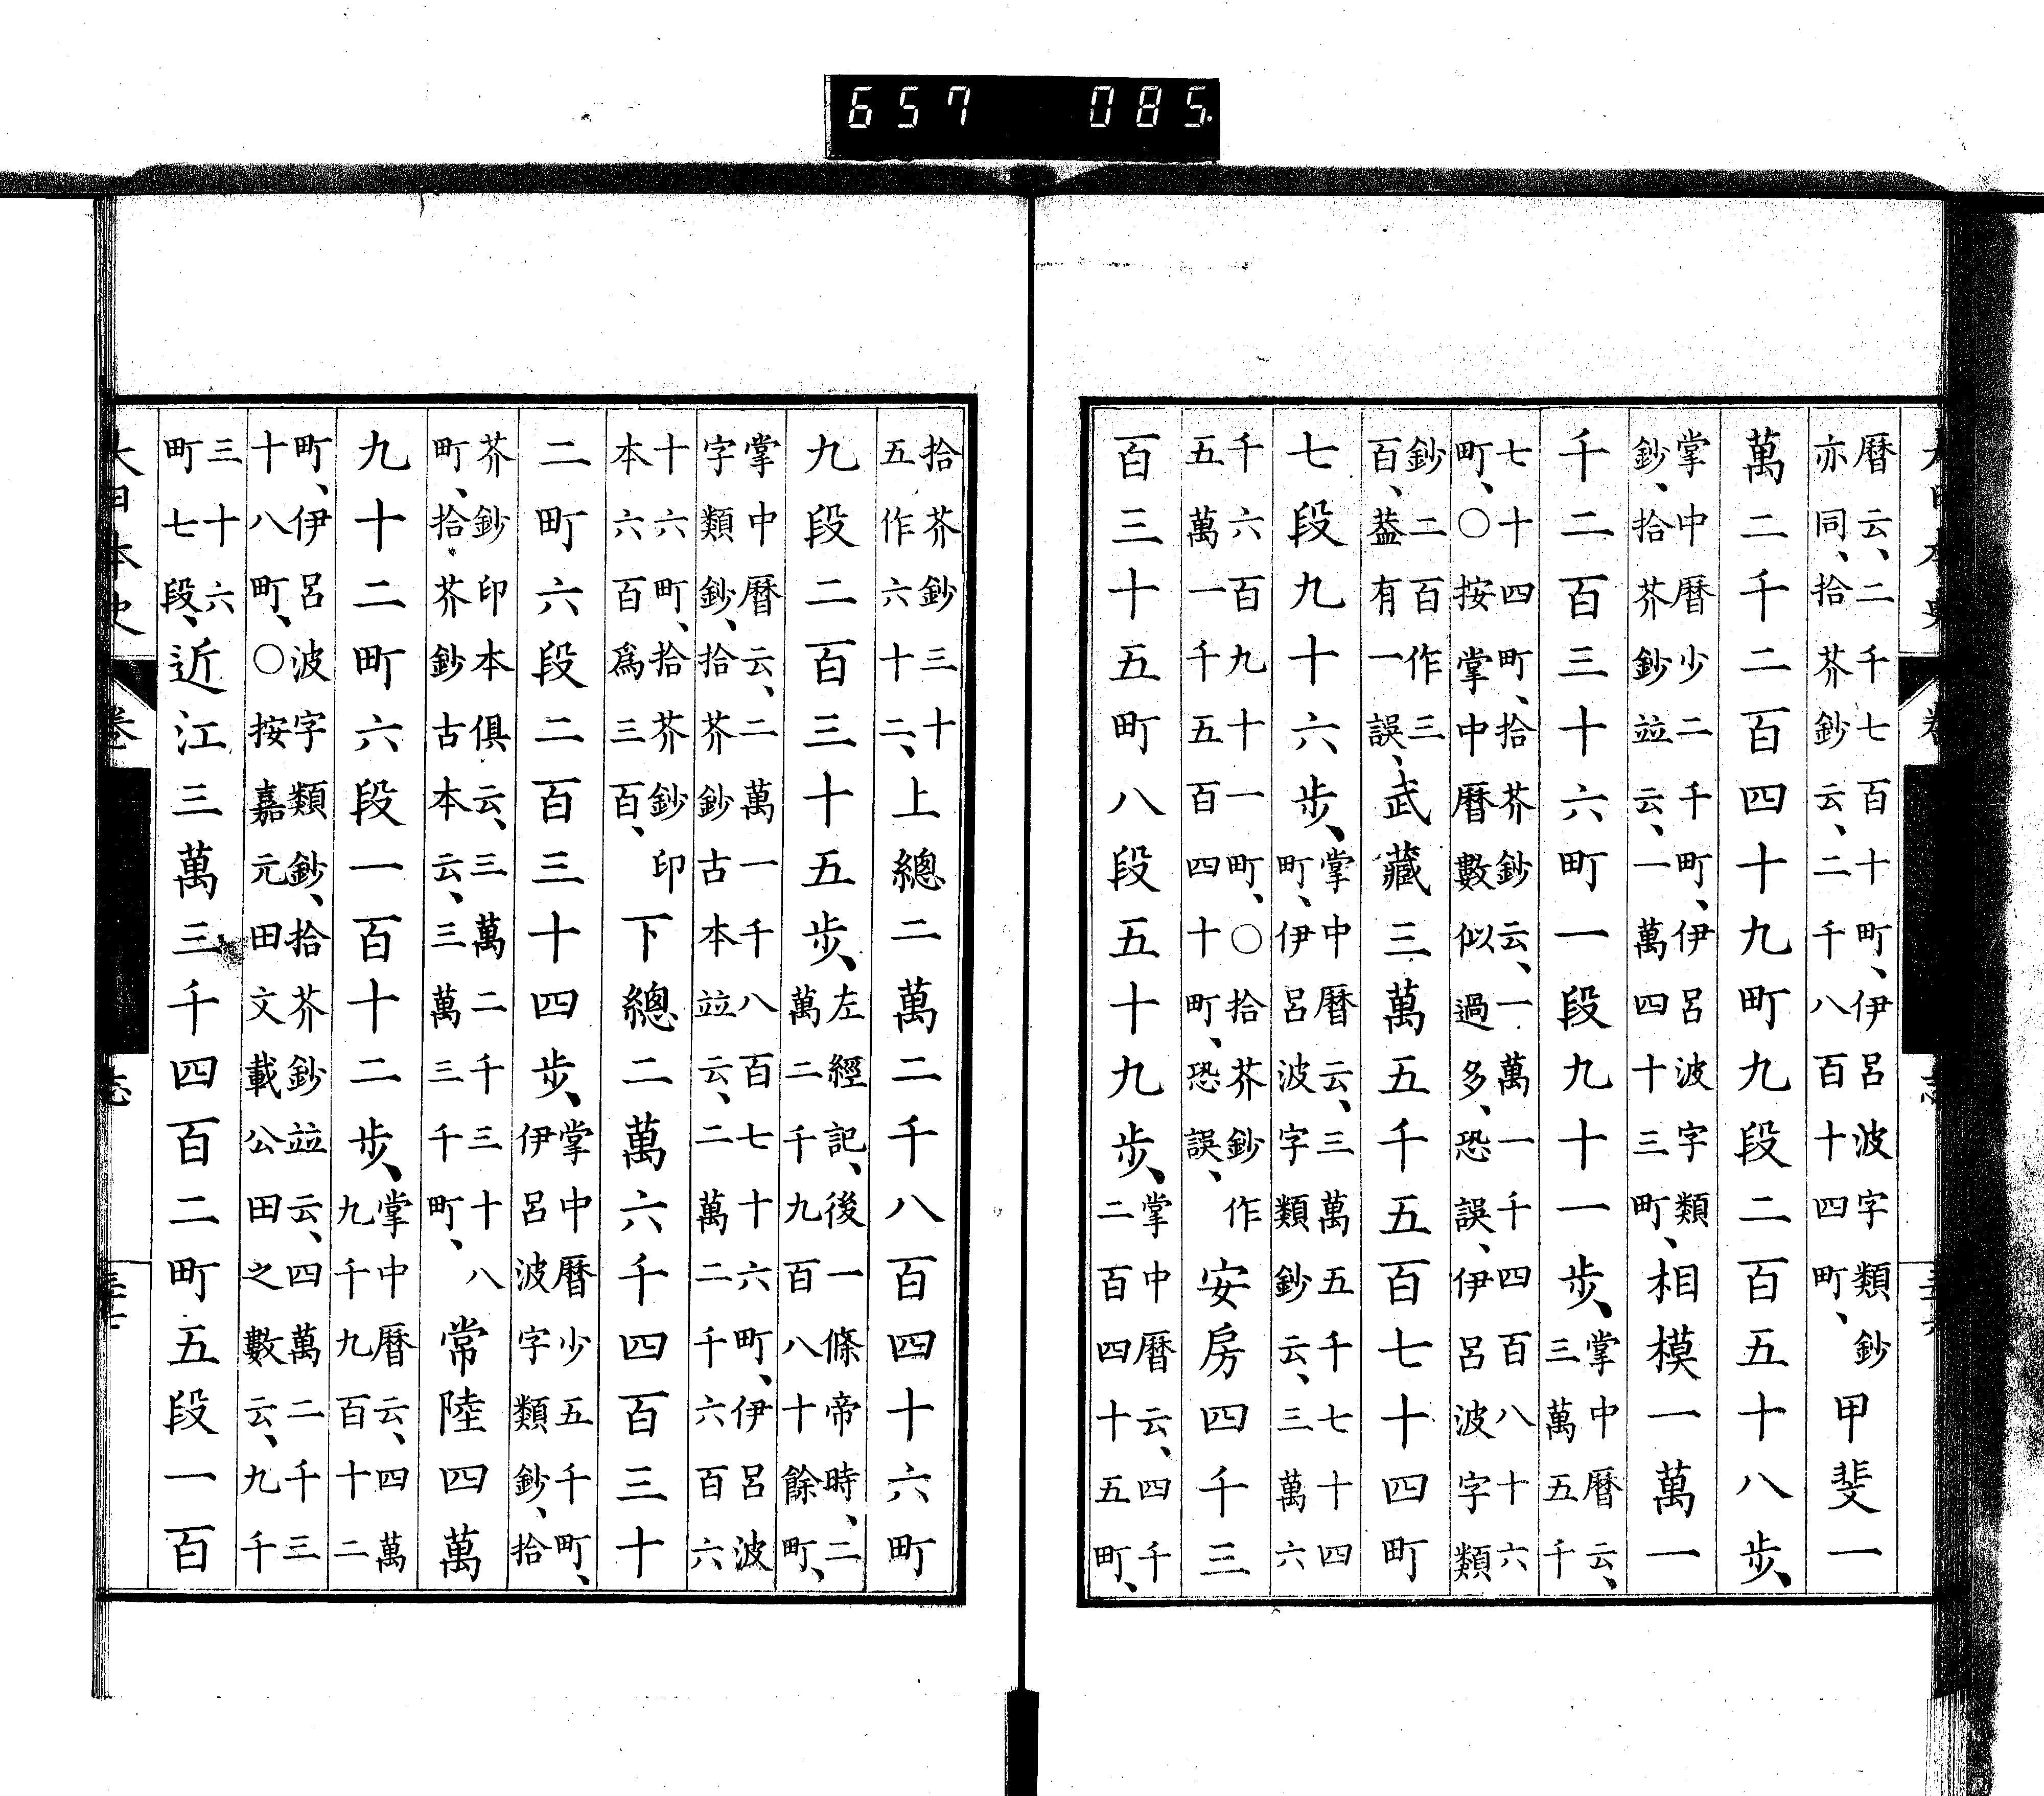 暦云、二千七百十町、伊呂波字類鈔
亦同、拾芥鈔云、二千八百十四町、
甲斐一
萬二千二百四十九町九段二百五十八歩、
掌中暦少二千町、伊呂波字類
鈔、拾芥鈔竝云、一萬四十三町、
相模一萬一
千二百三十六町一段九十一歩、
掌中暦云、
三萬五千
七十四町、拾芥鈔云、一萬一千四百八十六
町、○按掌中暦數似過多、恐誤、伊呂波字類
鈔二百作三
百、蓋有一誤、
武藏三萬五千五百七十四町
七段九十六歩、
掌中暦云、三萬五千七十四
町、伊呂波字類鈔云、三萬六
千六百九十一町、○拾芥鈔作
五萬一千五百四十町、恐誤、
安房四千三
百三十五町八段五十九歩、
掌中暦云、四千
二百四十五町、
拾芥鈔三十
五作六十二、
上總二萬二千八百四十六町
九段二百三十五歩、
左經記、後一條帝時、二
萬二千九百八十餘町、
掌中暦云、二萬一千八百七十六町、伊呂波
字類鈔、拾芥鈔古本竝云、二萬二千六百六
十六町、拾芥鈔印
本六百爲三百、
下總二萬六千四百三十
二町六段二百三十四歩、
掌中暦少五千町、
伊呂波字類鈔、拾
芥鈔印本倶云、三萬二千三十八
町、拾芥鈔古本云、三萬三千町、
常陸四萬
九十二町六段一百十二歩、
掌中暦云、四萬
九千九百十二
町、伊呂波字類鈔、拾芥鈔竝云、四萬二千三
十八町、○按嘉元田文載公田之數云、九千
三十六
町七段、
近江三萬三千四百二町五段一百
大日本史
卷
志
657 085